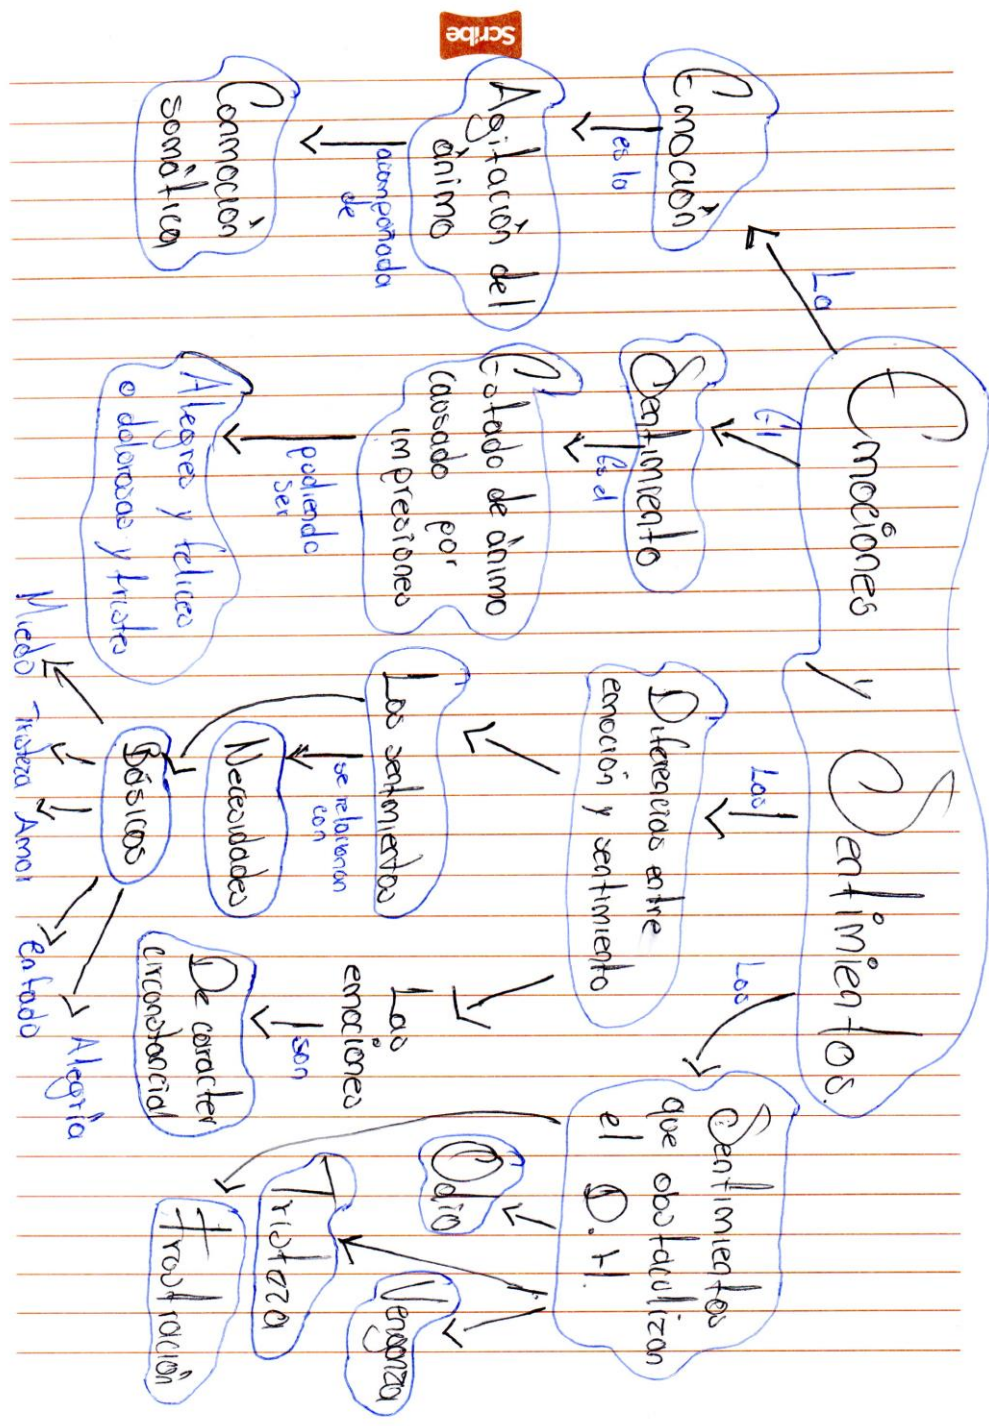 Scribe
Emociones y Sentimientos.
La
Emoción
es la
Agitación del
ánimo
acompañada
de
Conmoción
somática
El
Sentimiento
Es el
Estado de ánimo
causado por
impresiones
pudiendo
ser
Alegres y felices
o dolorosas y tristes
Las
Diferencias entre
emoción y sentimiento
Los sentimientos
se relacionan
con
Necesidades
Básicas
Miedo
Tristeza
Amor
enfado
Alegría
Las
emociones
son
De caracter
circonstancial
Los
Sentimientos
que obstaculizan
el D.H.
Odio
Venganza
Tristeza
Frostración